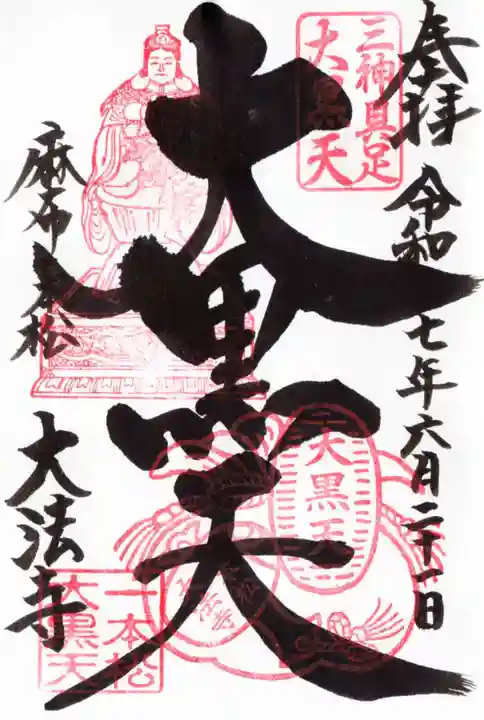 奉拝
令和七年六月二十一日
三神具足
大黒天
大黒天
大黒天
麻布一本松
大法寺
一本松
大黒天